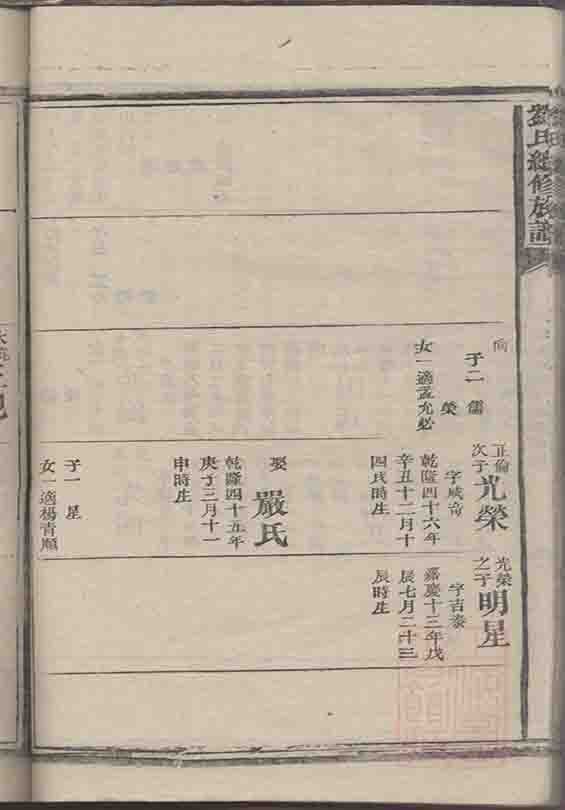 劉氏續修族譜
向
子二 儒
榮
女一適孟允必
正倫
次子
光榮
字咸奇
乾隆四十六年
辛丑十二月十
四戌時生
娶
嚴氏
乾隆四十五年
庚子三月十一
申時生
子一 星
女一適楊青順
光榮
之子
明星
字吉泰
嘉慶十三年戊
辰七月二十三
辰時生